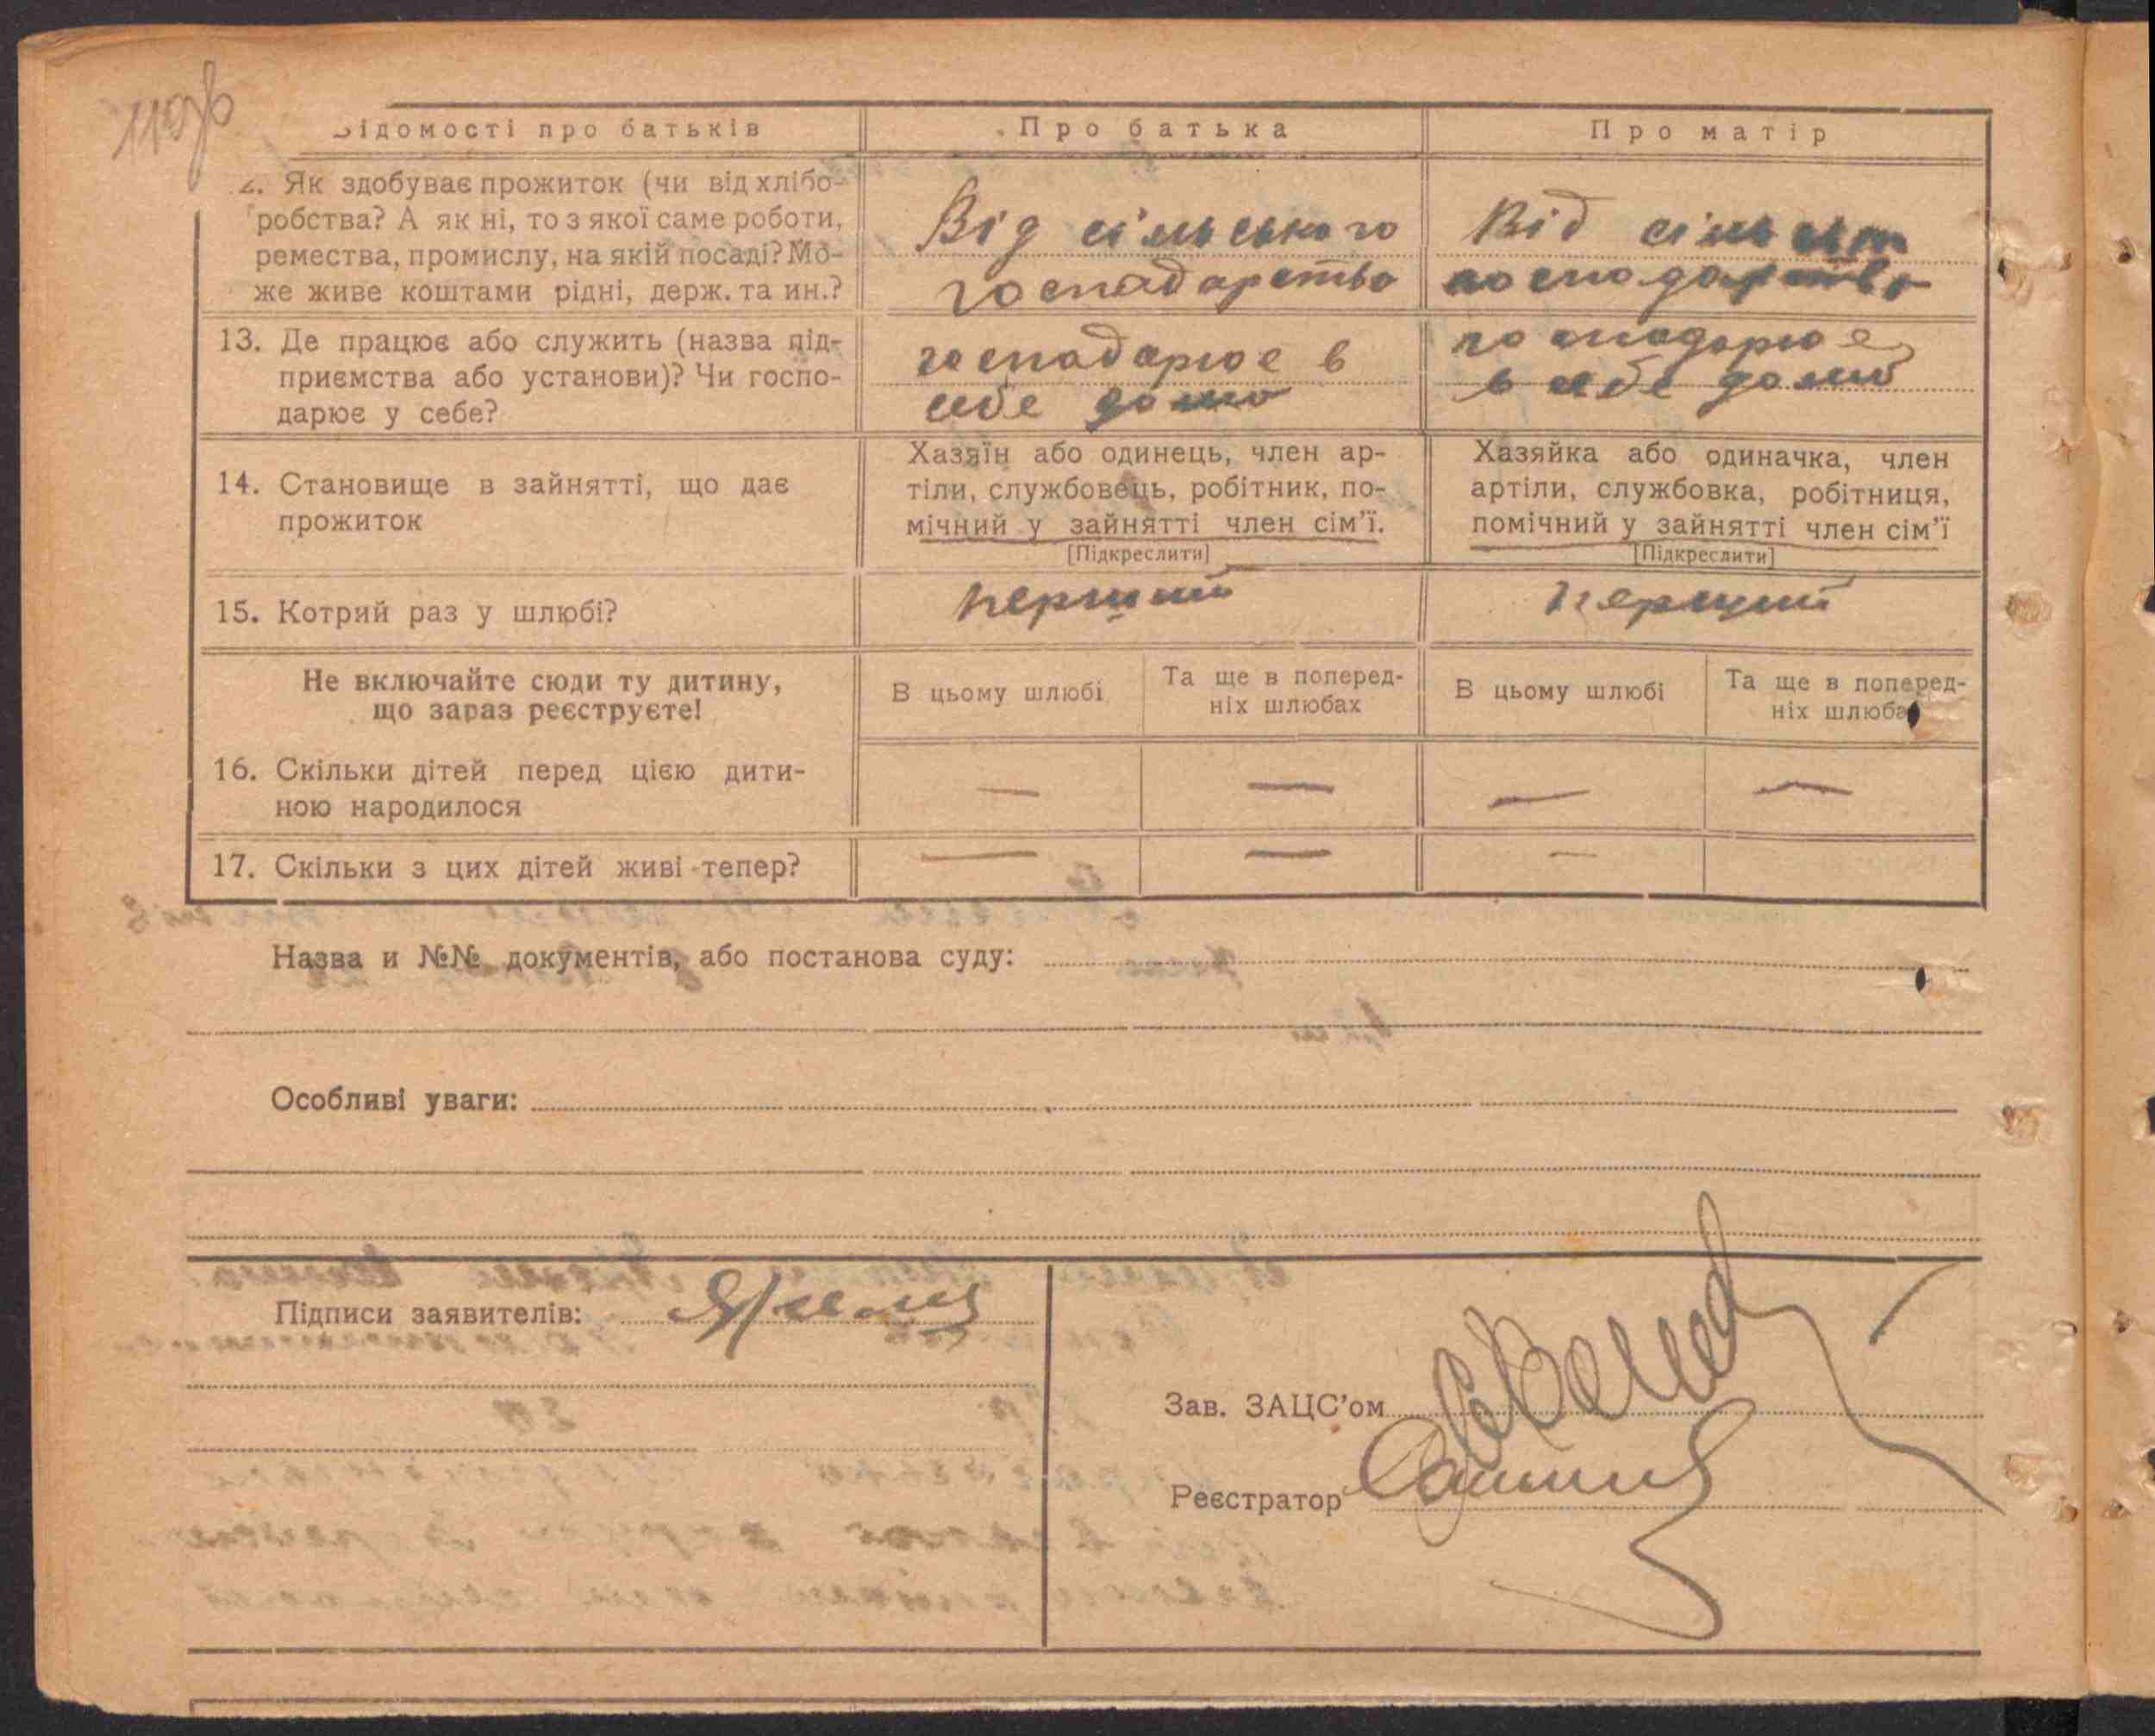 110зв
Відомості про батьків
Про батька
Про матір
2. Як здобуває прожиток (чи від хлібо-
робства? А як ні, то з якої саме роботи,
ремества, промислу, на якій посаді? Мо-
же живе коштами рідні, держ. та ин.?
Від сільського
господарство
Від сільськ
господарство
13. Де працює або служить (назва під-
приємства або установи)? Чи госпо-
дарює у себе?
господарює в
себе дома
господарює
в себе дома
14. Становище в зайнятті, що дає
прожиток
Хазяїн або одинець, член ар-
тіли, службовець, робітник, по-
мічний у зайнятті член сім’ї.
[Підкреслити]
Хазяйка або одиначка, член
артіли, службовка, робітниця,
помічний у зайнятті член сім’ї
[Підкреслити]
15. Котрий раз у шлюбі?
перший
перший
Не включайте сюди ту дитину,
що зараз реєструєте!
В цьому шлюбі
Та ще в поперед-
ніх шлюбах
В цьому шлюбі
Та ще в поперед-
ніх шлюбах
16. Скільки дітей перед цією дити-
ною народилося
— — — —
17. Скільки з цих дітей живі тепер?
— — —
Назва и №№ документів, або постанова суду:
Особливі уваги:
Підписи заявителів:
Зав. ЗАЦС’ом
Реєстратор